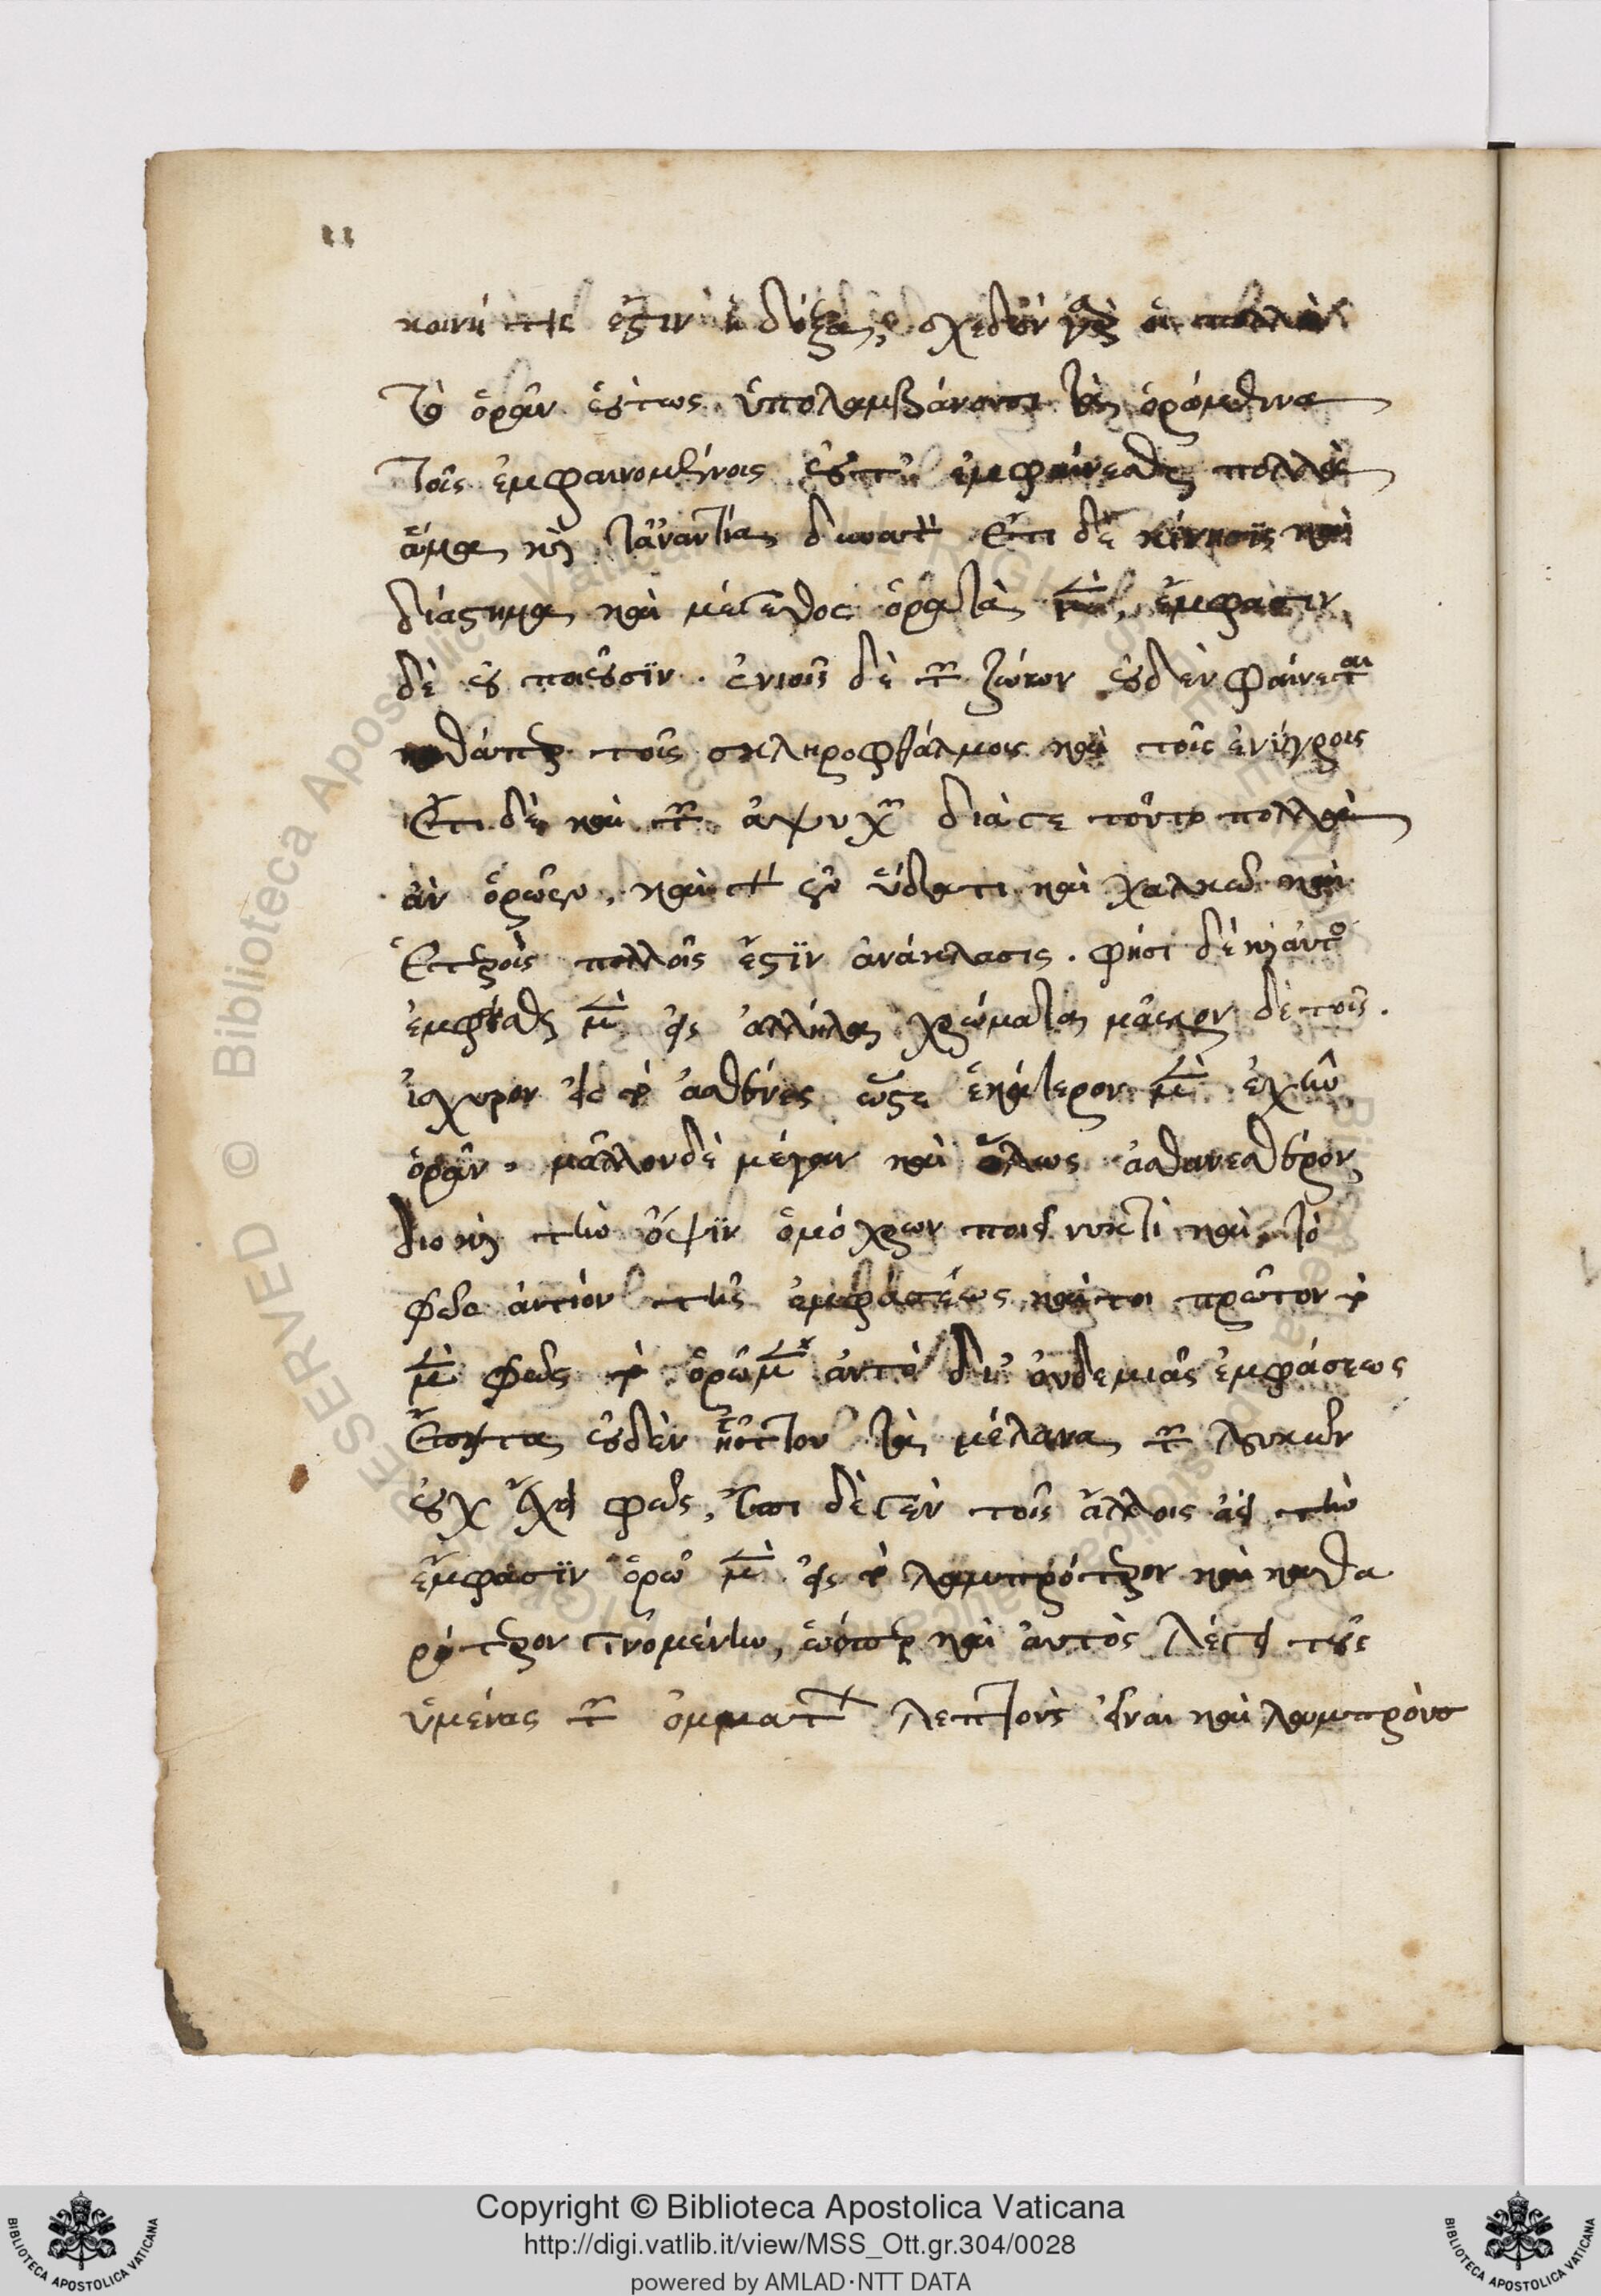 κοινή τις ἐστιν ἡ δόξα, σχεδὸν γὰρ οἱ πολλοὶ
τὸ ὁρᾶν οὕτως ὑπολαμβάνουσι τὰ ὁρώμενα
τοῖς ἐμφαινομένοις οὐ τῷ ἐμφαίνεσθαι πολλὰς
ἅμα καὶ τἀναντία δύναται. Ἔτι δὲ κίνησις καὶ
διάστημα καὶ μέγεθος ὁρατὰ μὲν, ἔμφασιν
δὲ οὐ ποιοῦσιν. ἐνίοις δὲ τῶν ζώων οὐδὲν φαίνεται
καθάπερ τοῖς σκληροφθάλμοις καὶ τοῖς ἐνύγροις
Ἔτι δὲ καὶ τῶν ἀψύχων διά γε τοῦτο πολλὰ
ἂν ὁρῴη, καὶ γὰρ ἐν ὕδατι καὶ χαλκῷ καὶ
ἑτέροις πολλοῖς ἐστὶν ἀνάκλασις. φησὶ δὲ καὶ αὐτὸς
ἐμφαίνεσθαι μὲν εἰς ἄλληλα χρώματα μᾶλλον δὲ τοῖς
ἰσχυρὸν εἰς τὸ ἀσθενὲς ὥστε ἑκάτερον μὲν ἐχρῆν
ὁρᾶν. μᾶλλον δὲ μέλαν καὶ ὅλως ἀσθενέστερον
διὸ καὶ τὴν ὄψιν ὁμόχρων ποιεῖ νυκτὶ καὶ τὸ
φῶς αἴτιον τῆς ἐμφάσεως καὶ τοι πρῶτον τὸ
μὲν φῶς τὸ ὁρώμενον αὐτὸ δι' οὐδεμιᾶς ἐμφάσεως
Ἔπειτα οὐδὲν ἧττον τὰ μέλανα τῶν λευκῶν
οὐχ ἔχει φῶς, Ἔτι δὲ γ' ἐν τοῖς ἄλλοις ἀεὶ τὴν
ἔμφασιν ὁρῶμεν εἰς τὸ λαμπρότερον καὶ καθα
ρώτερον γινομένην, ὥσπερ καὶ αὐτὸς λέγει τοὺς
ὑμένας τῶν ὀμμάτων λεπτοὺς εἶναι καὶ λαμπροὺς
Copyright © Biblioteca Apostolica Vaticana
http://digi.vatlib.it/view/MSS_Ott.gr.304/0028
powered by AMLAD·NTT DATA